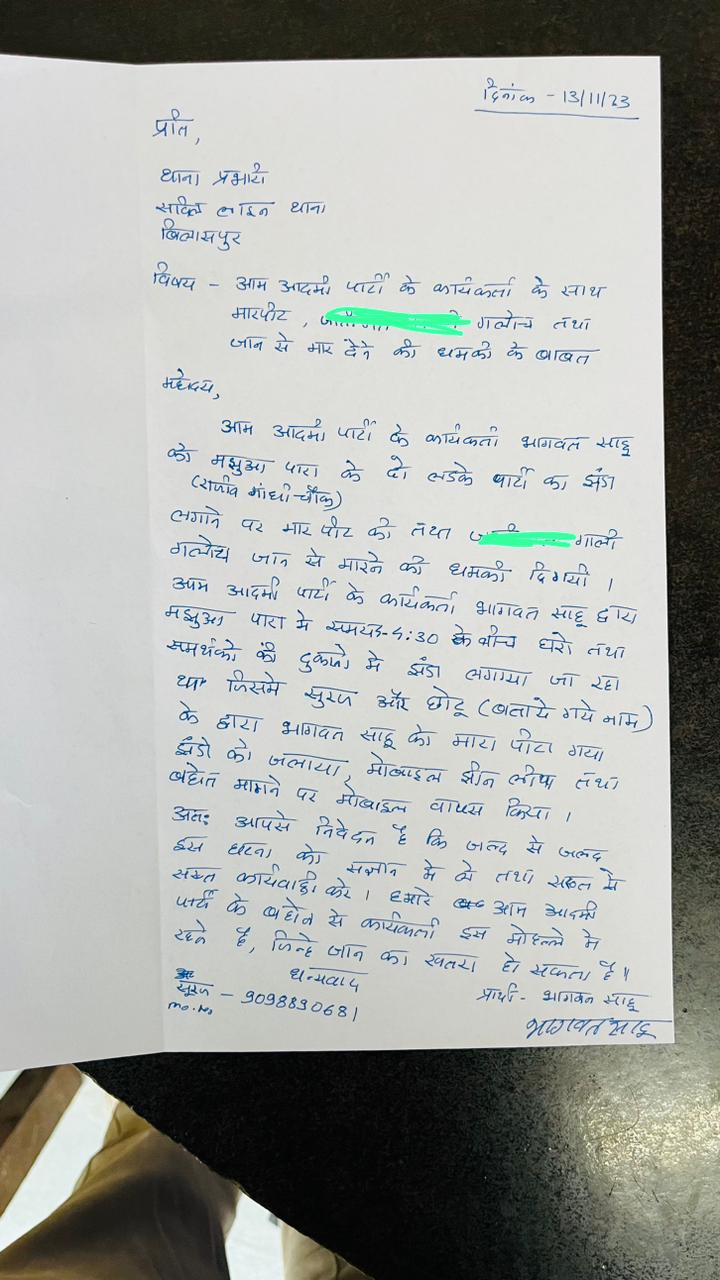 दिनांक - 13/11/23
प्रति,
थाना प्रभारी
सिविल लाइन थाना
बिलासपुर
विषय - आम आदमी पार्टी के कार्यकर्ता के साथ
मारपीट, गलोच तथा
जान से मार देने की धमकी के बाबत
महोदय,
आम आदमी पार्टी के कार्यकर्ता भागवत साहू
को मझुआ पारा के दो लडके पार्टी का झंडा
(राजीव गांधी चौक)
लगाने पर मार पीट की तथा गाली
गलोच जान से मारने की धमकी दिगयी।
आम आदमी पार्टी के कार्यकर्ता भागवत साहू द्वारा
मझुआ पारा मे समय 4:30 के बीच घरो तथा
समर्थको की दुकानो मे झंडा लगाया जा रहा
था जिसमे सुरज और छोटू (बताये गये नाम)
के द्वारा भागवत साहू को मारा पीटा गया
झंडो को जलाया, मोबाइल छीन लीया तथा
बहोत मांगने पर मोबाइल वापस किया।
अतः आपसे निवेदन है कि जल्द से जल्द
इस घटना को संज्ञान मे ले तथा सख्त से
सख्त कार्यवाही करे। हमारे आम आदमी
पार्टी के बहोत से कार्यकर्ता इस मोहल्ले मे
रहते है, जिन्हे जान का खतरा हो सकता है॥
धन्यवाद
सुरज - 9098890681
mo.no
प्रार्थी - भागवत साहू
भागवत साहू